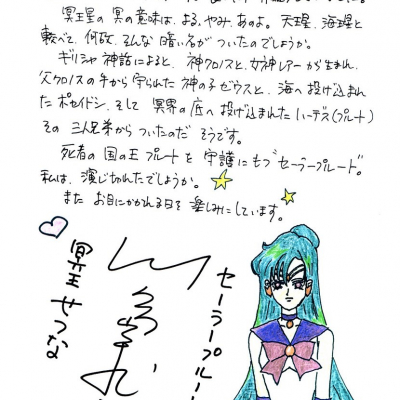 冥王星の冥の意味は、よる、やみ、あのよ。天王星、海王星と
較べて、何故、そんな暗い名がついたのでしょうか。
ギリシャ神話によると、神クロノスと、女神レアーから生まれ、
父クロノスの手から守られた神の子ゼウスと、海へ投げ込まれ
たポセイドン、そして冥界の底へ投げ込まれたハーデス(プルート)
その三兄弟からついたのだそうです。
死者の国の王プルートを守護にもつ"セーラープルート"。
私は、演じ切れたでしょうか。
またお目にかかれる日を楽しみにしています。
セーラープルー
冥王せつな